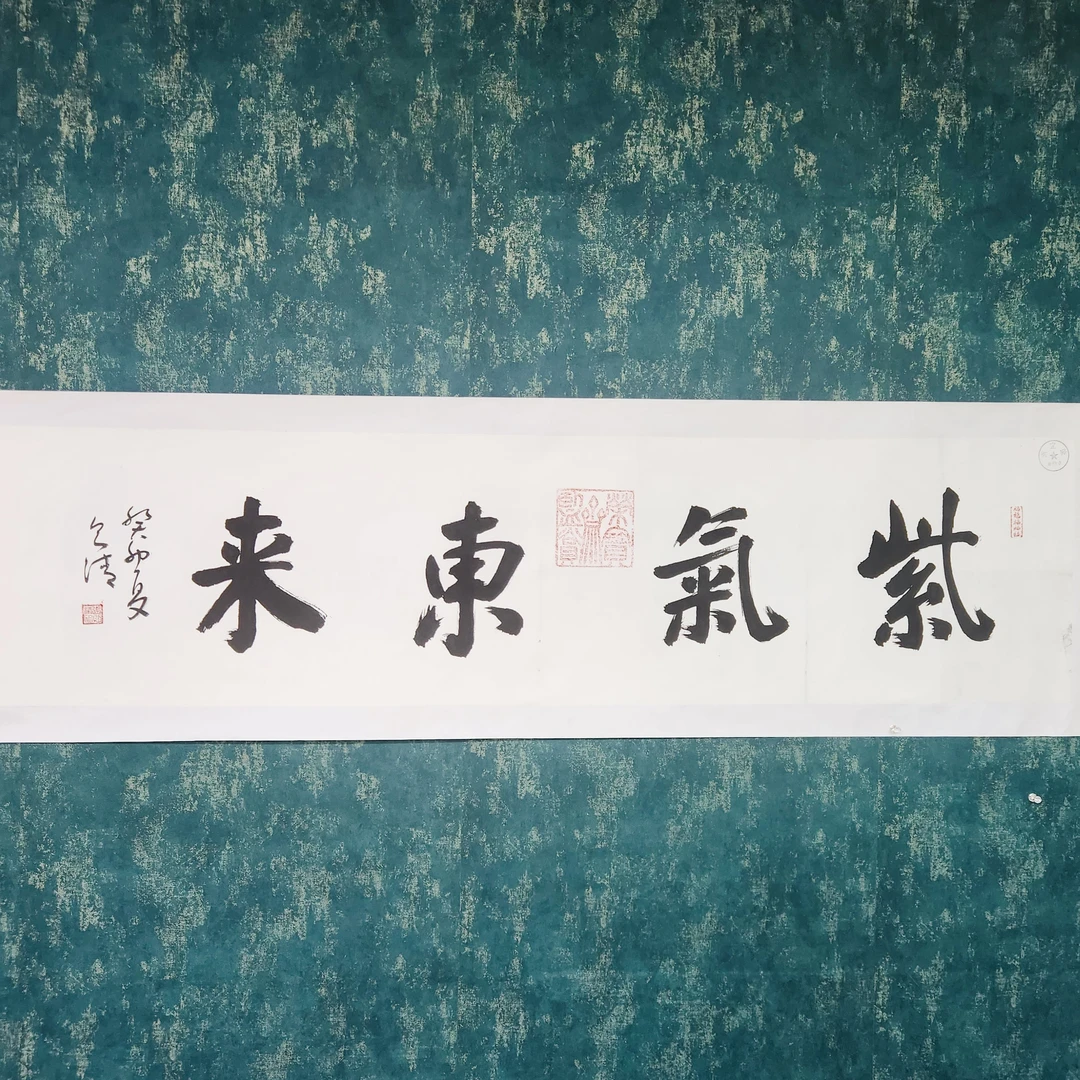 紫氣東来
癸卯夏